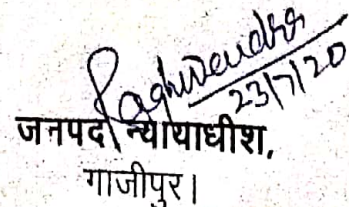 Raghvendra
23/7/20
जनपद न्यायाधीश,
गाजीपुर।